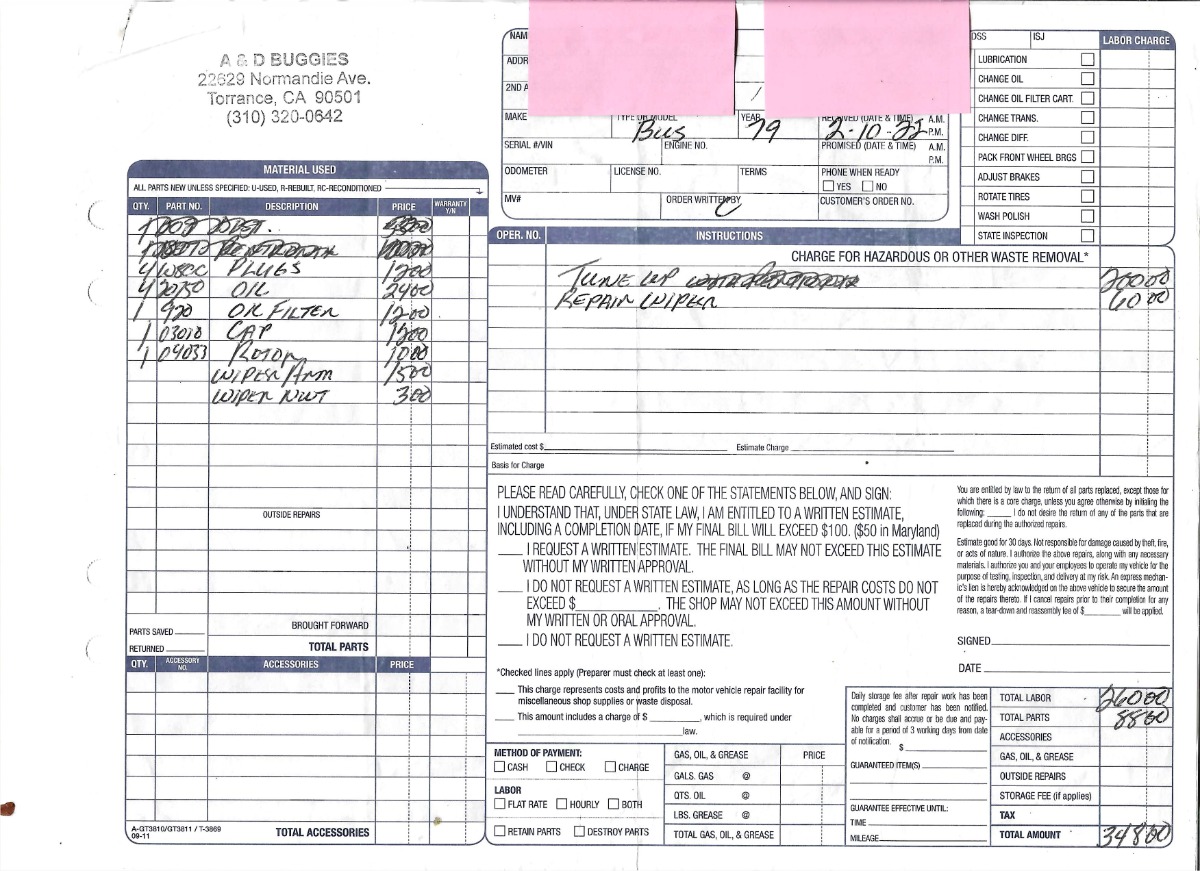 A & D BUGGIES
22629 Normandie Ave.
Torrance, CA 90501
(310) 320-0642
NAM
ADDR
2ND A
MAKE
TYPE OR MODEL Bus
YEAR 79
RECEIVED (DATE & TIME) A.M. P.M. 2-10-22
SERIAL #/VIN
ENGINE NO.
PROMISED (DATE & TIME) A.M. P.M.
ODOMETER
LICENSE NO.
TERMS
PHONE WHEN READY
YES NO
MV#
ORDER WRITTEN BY
CUSTOMER'S ORDER NO.
DSS ISJ LABOR CHARGE
LUBRICATION
CHANGE OIL
CHANGE OIL FILTER CART.
CHANGE TRANS.
CHANGE DIFF.
PACK FRONT WHEEL BRGS
ADJUST BRAKES
ROTATE TIRES
WASH POLISH
STATE INSPECTION
MATERIAL USED
ALL PARTS NEW UNLESS SPECIFIED: U-USED, R-REBUILT, RC-RECONDITIONED
QTY. PART NO. DESCRIPTION PRICE WARRANTY Y/N
4 W8CC PLUGS 1200
4 20/50 OIL 2400
1 920 OIL FILTER 1200
1 03010 CAP 1200
1 04033 ROTOR 1000
WIPER ARM 1500
WIPER NUT 300
OUTSIDE REPAIRS
BROUGHT FORWARD
PARTS SAVED
RETURNED
TOTAL PARTS
QTY. ACCESSORY NO. ACCESSORIES PRICE
A-GT3810/GT3811 / T-3869
09-11
TOTAL ACCESSORIES
OPER. NO. INSTRUCTIONS
CHARGE FOR HAZARDOUS OR OTHER WASTE REMOVAL*
TUNE UP 20000
REPAIR WIPER 6000
Estimated cost $ Estimate Charge
Basis for Charge
PLEASE READ CAREFULLY, CHECK ONE OF THE STATEMENTS BELOW, AND SIGN:
I UNDERSTAND THAT, UNDER STATE LAW, I AM ENTITLED TO A WRITTEN ESTIMATE,
INCLUDING A COMPLETION DATE, IF MY FINAL BILL WILL EXCEED $100. ($50 in Maryland)
I REQUEST A WRITTEN ESTIMATE. THE FINAL BILL MAY NOT EXCEED THIS ESTIMATE
WITHOUT MY WRITTEN APPROVAL.
I DO NOT REQUEST A WRITTEN ESTIMATE, AS LONG AS THE REPAIR COSTS DO NOT
EXCEED $ . THE SHOP MAY NOT EXCEED THIS AMOUNT WITHOUT
MY WRITTEN OR ORAL APPROVAL.
I DO NOT REQUEST A WRITTEN ESTIMATE.
You are entitled by law to the return of all parts replaced, except those for
which there is a core charge, unless you agree otherwise by initialing the
following: I do not desire the return of any of the parts that are
replaced during the authorized repairs.
Estimate good for 30 days. Not responsible for damage caused by theft, fire,
or acts of nature. I authorize the above repairs, along with any necessary
materials. I authorize you and your employees to operate my vehicle for the
purpose of testing, inspection, and delivery at my risk. An express mechan-
ic's lien is hereby acknowledged on the above vehicle to secure the amount
of the repairs thereto. If I cancel repairs prior to their completion for any
reason, a tear-down and reassembly fee of $ will be applied.
SIGNED
DATE
*Checked lines apply (Preparer must check at least one):
This charge represents costs and profits to the motor vehicle repair facility for
miscellaneous shop supplies or waste disposal.
This amount includes a charge of $ , which is required under
law.
METHOD OF PAYMENT:
CASH CHECK CHARGE
LABOR
FLAT RATE HOURLY BOTH
RETAIN PARTS DESTROY PARTS
GAS, OIL, & GREASE PRICE
GALS. GAS @
QTS. OIL @
LBS. GREASE @
TOTAL GAS, OIL, & GREASE
Daily storage fee after repair work has been
completed and customer has been notified.
No charges shall accrue or be due and pay-
able for a period of 3 working days from date
of notification. $
GUARANTEED ITEM(S)
GUARANTEE EFFECTIVE UNTIL:
TIME
MILEAGE
TOTAL LABOR 26000
TOTAL PARTS 8800
ACCESSORIES
GAS, OIL, & GREASE
OUTSIDE REPAIRS
STORAGE FEE (if applies)
TAX
TOTAL AMOUNT 34800